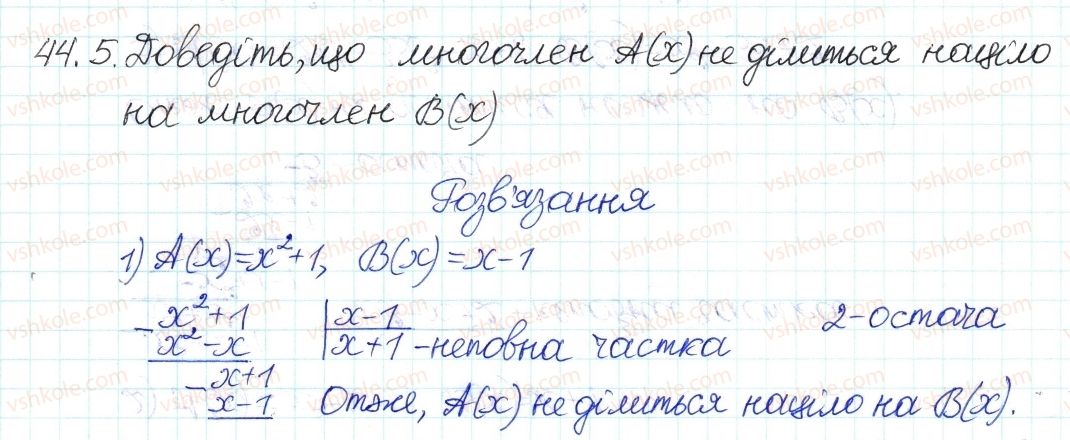 44.5. Доведіть, що многочлен A(x) не ділиться націло
на многочлен B(x)
Розв'язання
1) A(x)=x²+1, B(x)=x-1
- x²+1 | x-1 2-остача
x²-x | x+1 -неповна частка
- x+1
x-1 Отже, A(x) не ділиться націло на B(x).